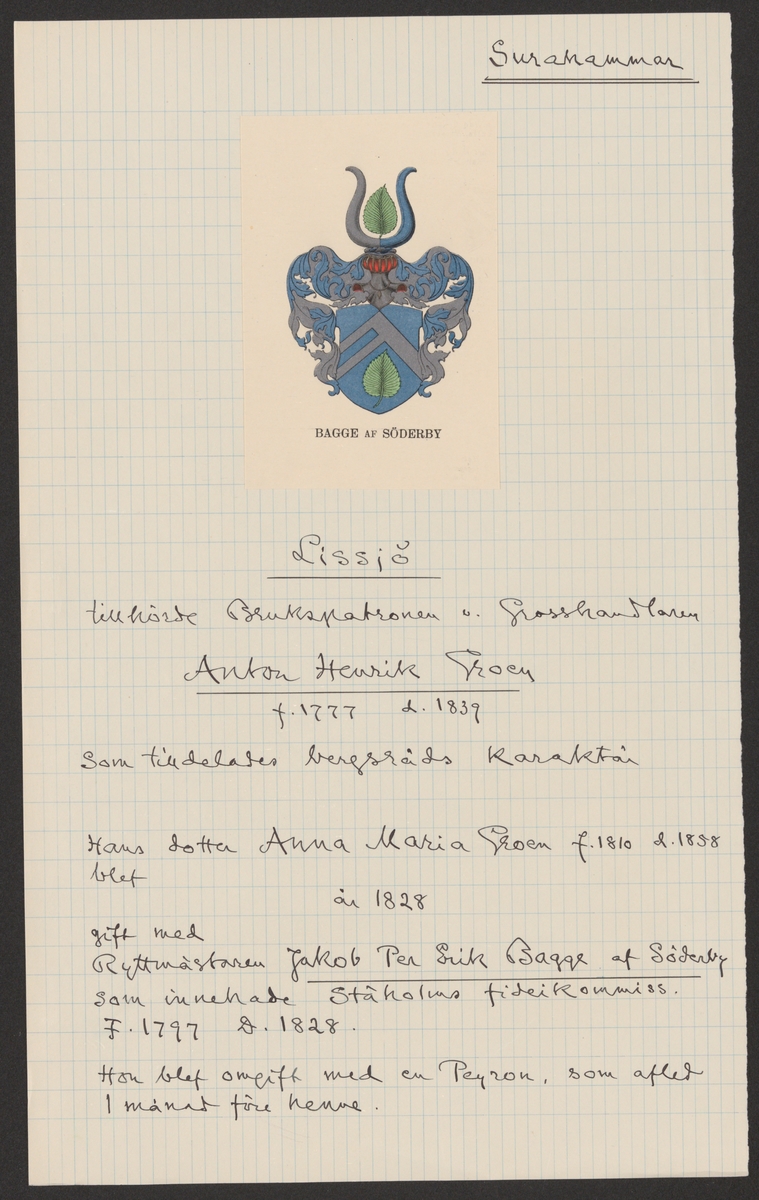 Surahammar
BAGGE AF SÖDERBY
Lissjö
tillhörde Brukspatronen o. Grosshandlaren
Anton Henrik Groen
f. 1777 d. 1839
Som tilldelades bergsråds Karaktär
Hans dotter Anna Maria Groen f. 1810 d. 1858
blef
år 1828
gift med
Ryttmästaren Jakob Per Erik Bagge af Söderby
som innehade Ståholms fideikommiss.
F. 1797 D. 1828.
Hon blef omgift med en Peyron, som afled
1 månad före henne.